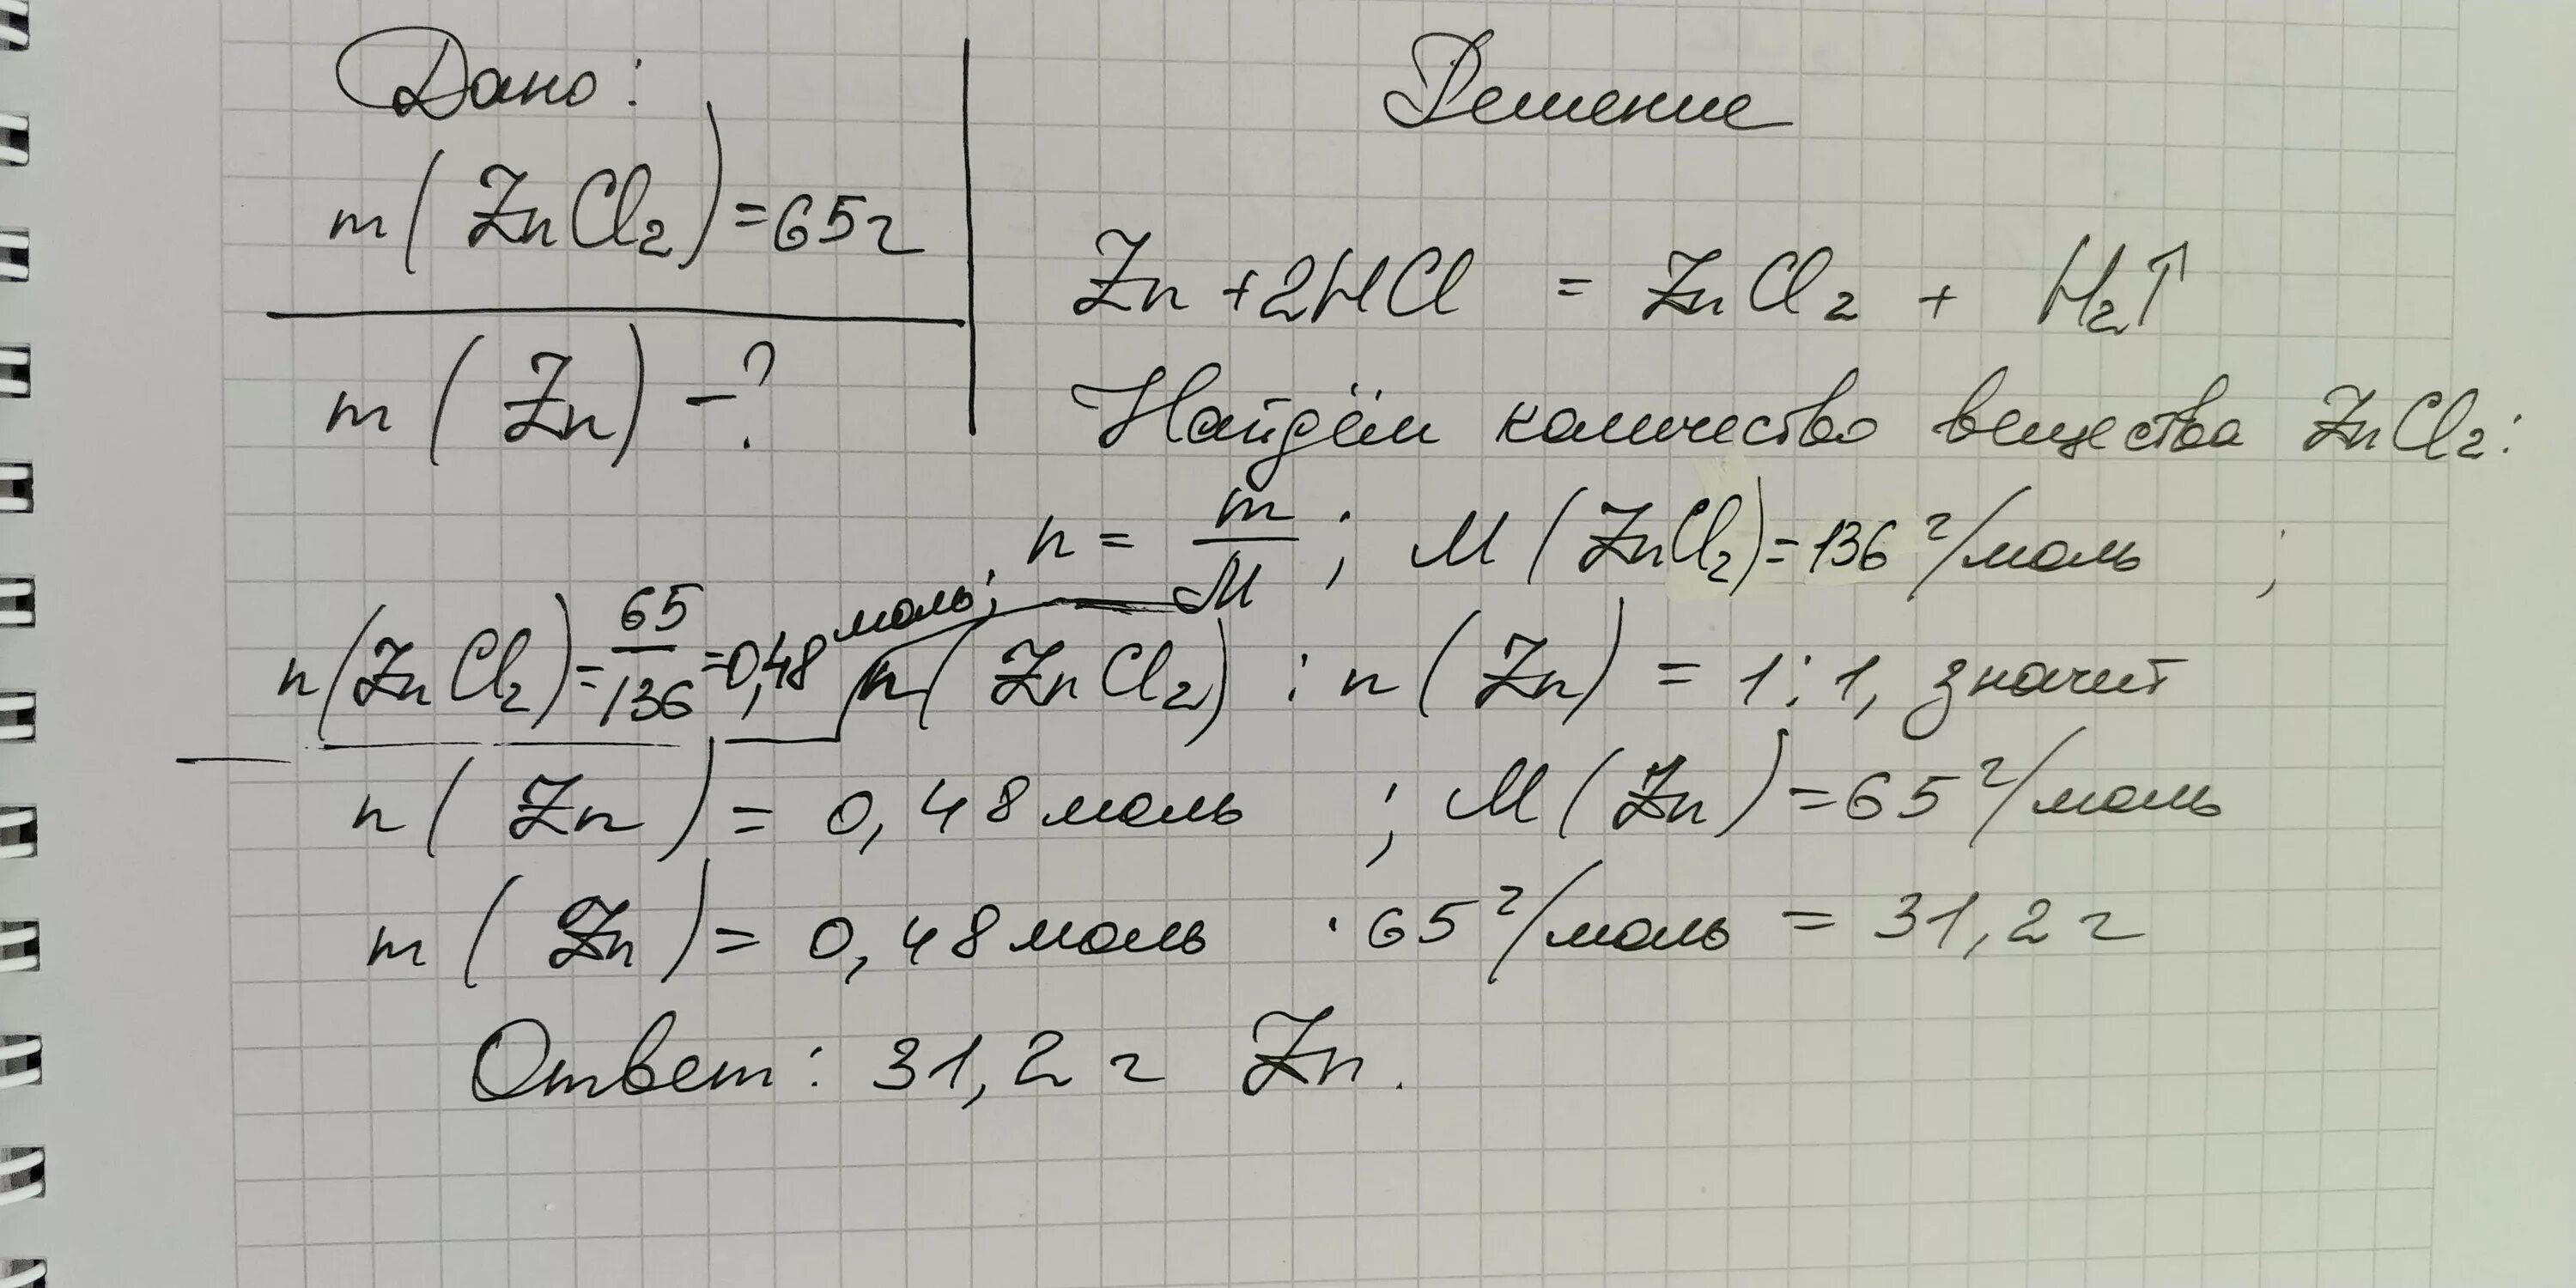 Дано:
m(ZnCl₂)=65г
m(Zn) -?
Решение
Zn+2HCl = ZnCl₂ + H₂↑
Найдём количество вещества ZnCl₂:
n = m/M; M(ZnCl₂)=136 г/моль ;
n(ZnCl₂)=65/136=0,48 моль; n(ZnCl₂) : n(Zn) = 1:1, значит
n(Zn) = 0,48 моль ; M(Zn)=65 г/моль
m(Zn)= 0,48 моль · 65 г/моль = 31,2 г
Ответ: 31,2 г Zn.